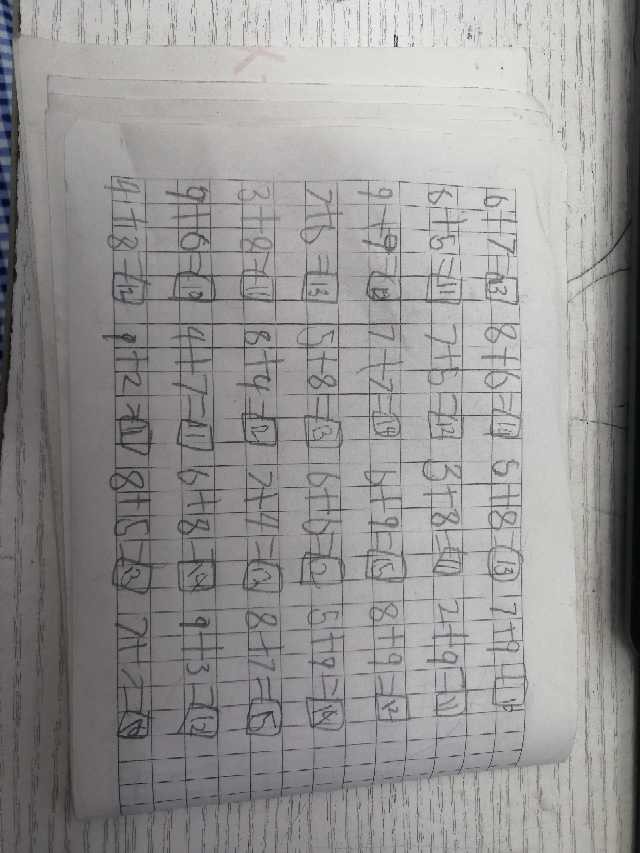 6+7=13 8+6=14 5+8=13 7+9=16
6+5=11 7+5=12 3+8=11 2+9=11
9+9=18 7+7=14 6+9=15 8+9=17
7+6=13 5+8=13 6+6=12 5+9=14
3+8=11 8+4=12 7+4= 8+7=15
9+6= 4+7=11 6+8=14 9+3=12
4+8=12 9+2=11 8+5=13 7+7=14